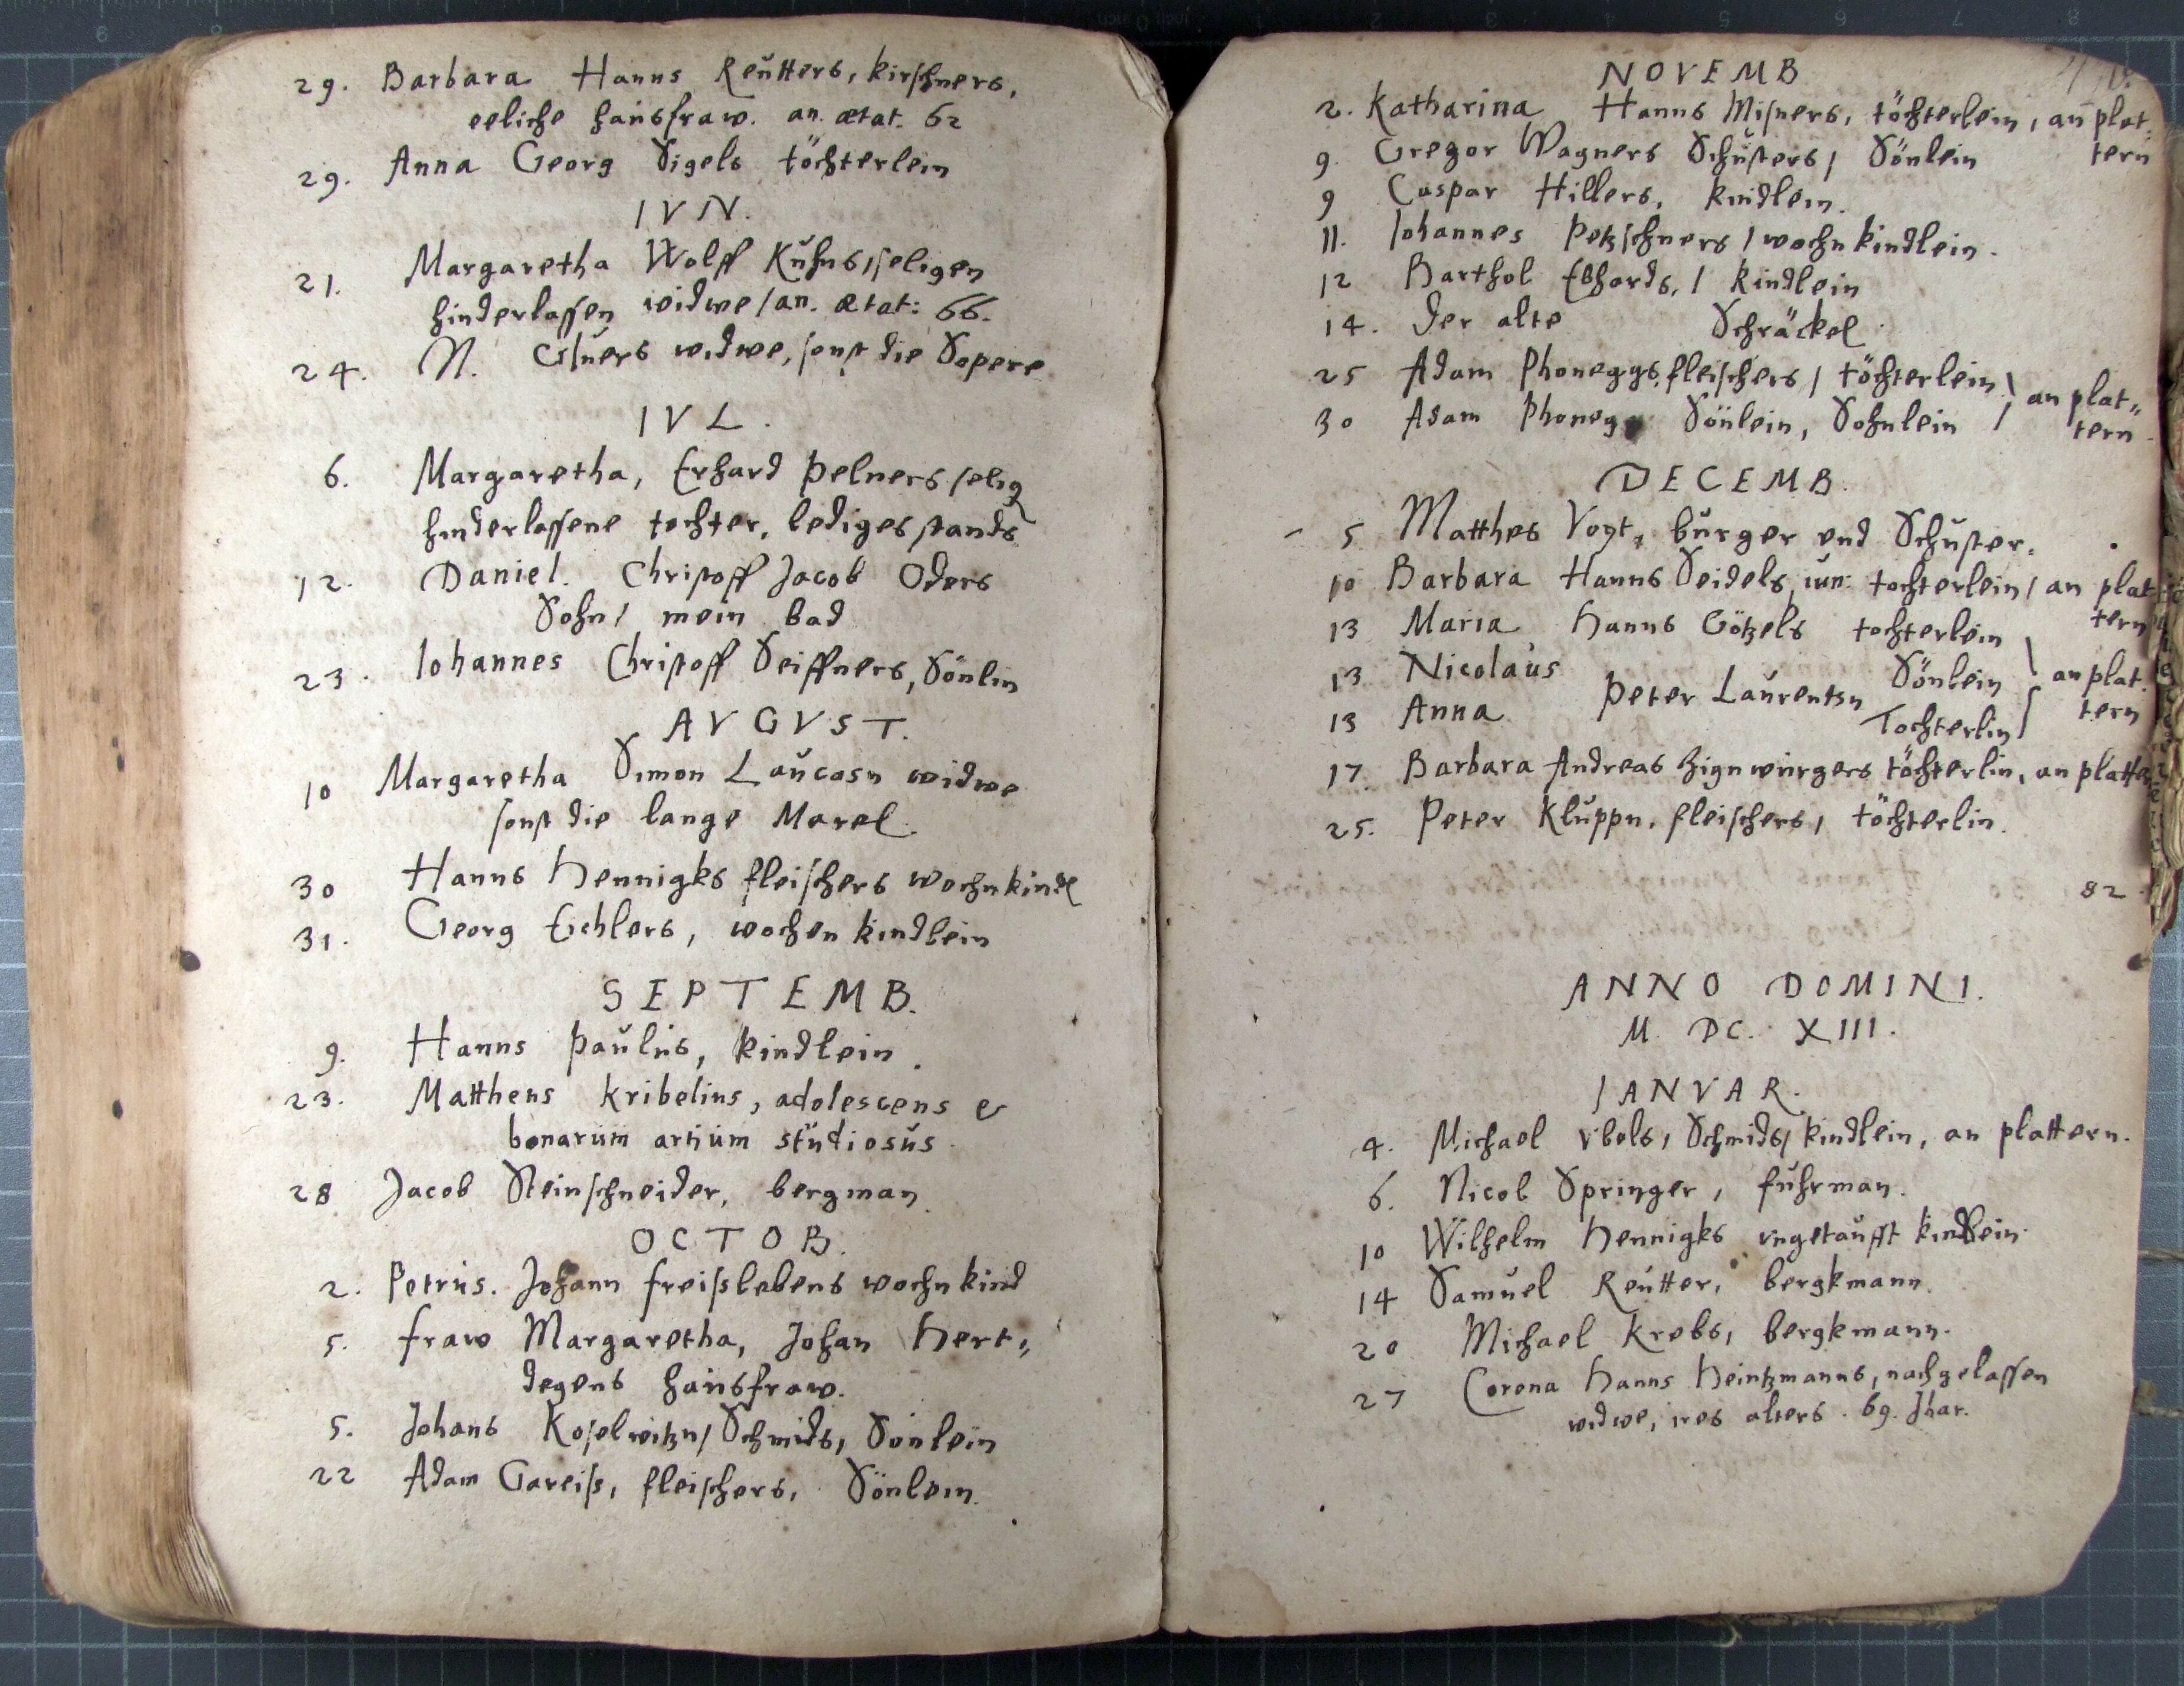 29. Barbara Hanns Reutters, kirschners,
eeliche hausfraw. an. ætat. 62
29. Anna Georg Sigels töchterlein
IVN.
21. Margaretha Wolff Kuhns, seligen
hinderlassen widwe / an. ætat: 66.
24. N. widwe, sonst die Sopere
IVL.
6. Margaretha, Erhard Pelners selig
hinderlassene tochter, lediges stands
12. Daniel. Christoff Jacob Oders
Sohn / mein bad
23. Iohannes Christoff Seiffners, Sönlin
AVGVST.
10 Margaretha Simon Laucasn widwe
sonst die lange Marel.
30 Hanns Hennigks fleischers wochnkindl
31. Georg Eichlers, wochen kindlein
SEPTEMB.
9. Hanns Paulus, kindlein.
23. Mattheus Kribelius, adolescens &
bonarum artium studiosus.
28 Jacob Steinschneider, bergman.
OCTOB.
2. Petrus. Johann freislebens wochnkind
5. fraw Margaretha, Johan Hert„
degens hausfraw.
5. Johans Koselwitzn / Schmids, Sönlein
22 Adam Gareiss, fleischers, Sönlein.
NOVEMB
2. Katharina Hanns Misners, töchterlein, an plat:
tern
9. Gregor Wagners Schusters / Sönlein
9 Caspar Hillers, kindlein.
11. Iohannes Petzschners / wochnkindlein.
12 Barthol Ebhards, / kindlein
14. Der alte Schräckel.
25 Adam Phoneggs, fleischers / töchterlein \ an plat„
30 Adam Phoneg Sönlein, Sohnlein / tern.
DECEMB.
5 Matthes Vogt, burger vnd Schuster.
10 Barbara Hanns Seidels, iun: tochterlein / an plat
tern
13 Maria Hanns Götzels tochterlein
13 Nicolaus Sönlein an plat.
Peter Laurentzn
13 Anna Tochterlin tern
17. Barbara Andreas Zignwürgers töchterlin, an platte
25. Peter Kluppn, fleischers, töchterlin.
82
ANNO DOMINI.
M. DC. XIII.
IANVAR.
4. Michael Vbels, Schmids / kindlein, an plattern.
6. Nicol Springer, fuhrman.
10 Wilhelm Hennigks vngetaufft kindlein.
14 Samuel Reutter, bergkmann.
20 Michael Krebs, bergkmann.
27 Corona Hanns Heintzmanns, nachgelassen
widwe, ires alters. 69. Jhar.